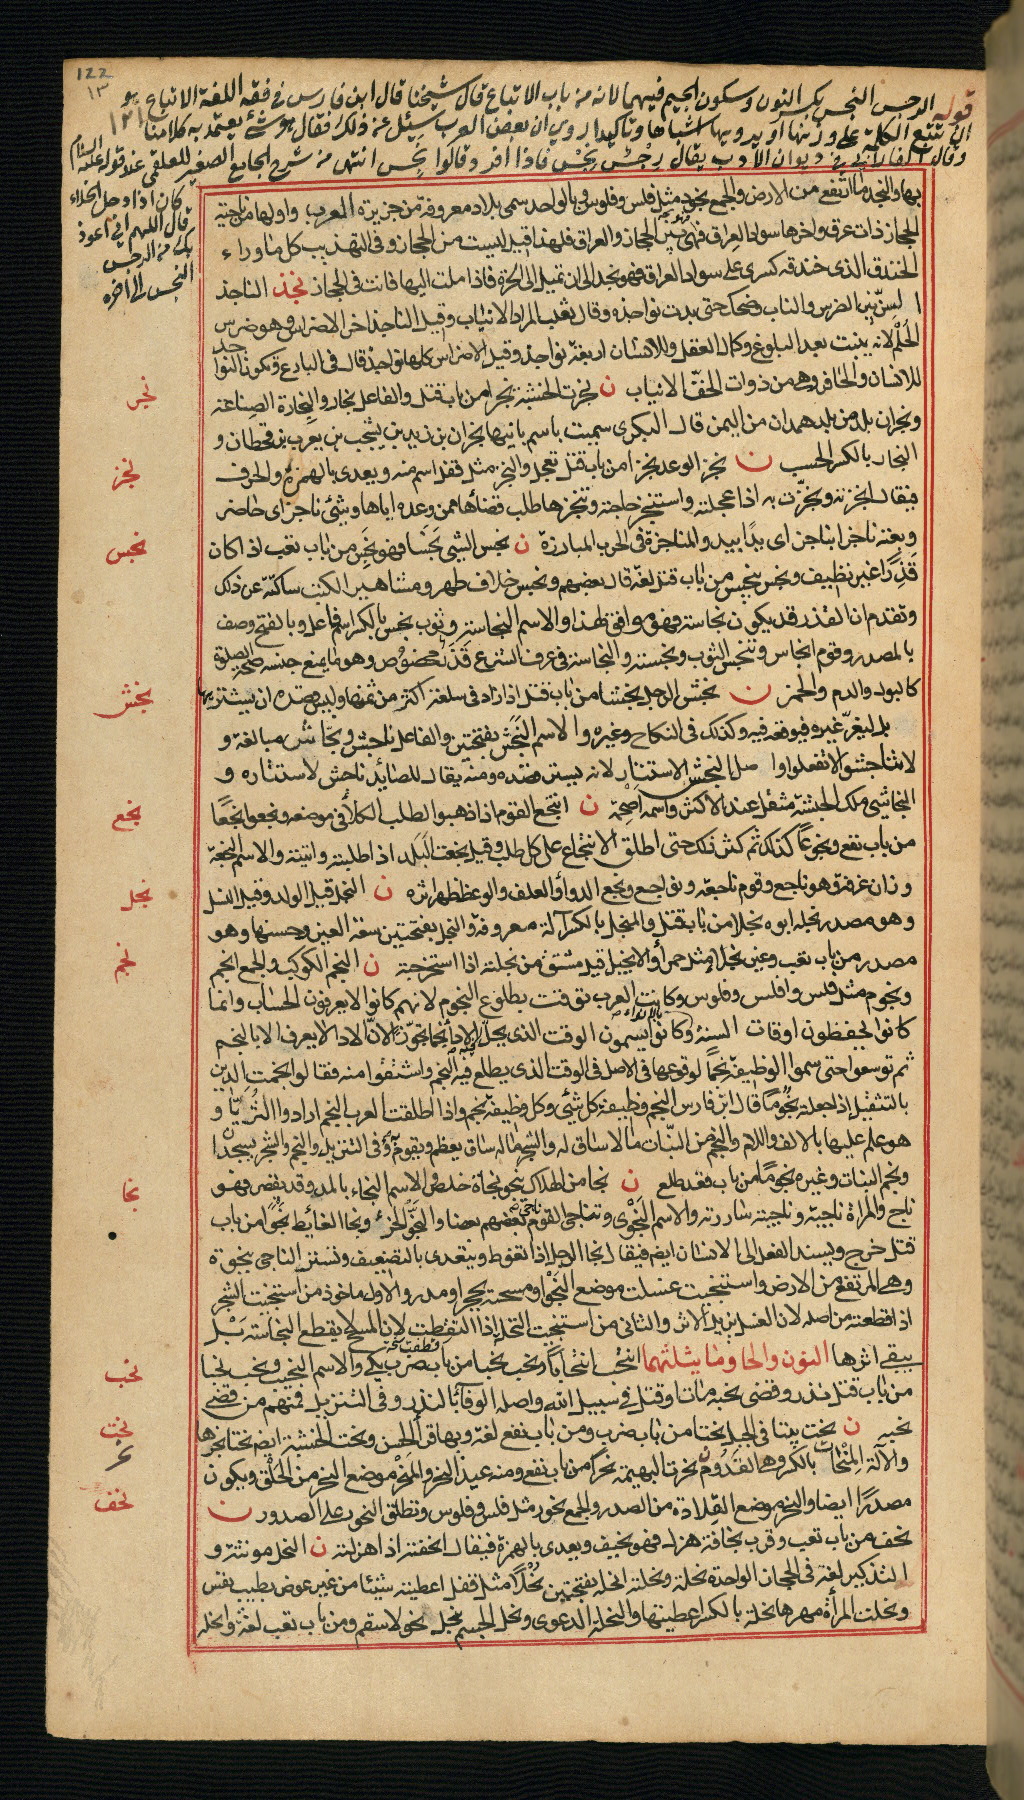 122
١٣
١٢١
قوله الرجس النجس بكسر النون وسكون الجيم فيهما لانه من باب الاتباع قال شيخنا قال ابن فارس في فقه اللغة الاتباع هو
ان تتبع الكلمة على وزنها او رويها اشباعا وتاكيدا روي ان بعض العرب سئل عن ذلك فقال هو شئ يعتمد به كلامنا
وقال الفارابي في ديوان الأدب يقال رجس نجس فاذا افرد قالوا نجس انتهى من شرح الجامع الصغير للعلقمي عند قوله عليه السلام
كان اذا دخل الخلاء
قال اللهم اني اعوذ
بك من الرجس
النجس الى اخره
بها والنجد ما ارتفع من الارض والجمع نجود مثل فلس وفلوس وبالواحد سمى بلاد معروفة من جزيرة العرب واولها من ناحية
الحجاز ذات عرق واخرها سواد العراق فهي بين الحجاز والعراق فلهذا قيل ليست من الحجاز وفى التهذيب كل ما وراء
الخندق الذى خندقه كسرى على سواد العراق فهو نجد الى ان تميل الى الحرة فاذا ملت اليها فانت فى الحجاز نجذ الناجذ
السن بين الضرس والناب وضحك حتى بدت نواجذه وقال ثعلب المراد الانياب وقيل الناجذ اخر الاضراس وهو ضرس
الحلم لانه ينبت بعد البلوغ وكمال العقل وللانسان اربعة نواجذ وقيل الاضراس كلها نواجذ قال فى البارع وتكون النواجذ
للانسان والحافر وهى من ذوات الخف الانياب ن نجرت الخشبة نجرا من باب قتل والفاعل نجار والنجارة الصناعة
ونجران بلد من بلد همدان من اليمن قال البكرى سميت باسم بانيها نجران بن زيد بن يشجب بن يعرب بن قحطان و
النجار بالكسر الحسب ن نجز الوعد نجزا من باب قتل تعجل والنجز مثل قفل اسم منه ويعدى بالهمزة والحرف
فيقال انجزته ونجزت به اذا عجلته واستنجز حاجته وتنجزها طلب قضاءها ممن وعده اياها وشيئ ناجز اى حاضر
وبعته ناجزا بناجز اى يدًا بيد والمناجزة فى الحرب المبارزة ن نجس الشيئ نجسا فهو نجس من باب تعب اذا كان
قذرا غير نظيف ونجس ينجس من باب قتل لغة قال بعضهم ونجس خلاف طهر ومشاهير الكتب ساكتة عن ذلك
وتقدم ان القذر قد يكون نجاسة فهو موافق لهذا والاسم النجاسة وثوب نجس بالكسر اسم فاعل وبالفتح وصف
بالمصدر وقوم انجاس وتنجس الثوب ونجسته والنجاسة فى عرف الشرع قذر مخصوص وهو ما يمنع جنسه صحة الصلوة
كالبول والدم والخمر ن نجش الرجل نجشا من باب قتل اذا زاد فى سلعة اكثر من ثمنها وليس قصده ان يشتريها
بل ليغر غيره فيوقعه فيه وكذلك فى النكاح وغيره والاسم النجش بفتحتين والفاعل ناجش ونجاش مبالغة و
لا تناجشوا لا تفعلوا واصل النجش الاستتار لانه يستر قصده ومنه يقال للصائد ناجش لاستتاره و
النجاشي ملك الحبشة مثقل عند الاكثر واسمه اصحمة ن انتجع القوم اذا ذهبوا لطلب الكلأ فى موضعه ونجعوا نجعًا
من باب نفع ونجوعا كذلك ثم كثر ذلك حتى اطلق الانتجاع على كل طلب وقيل نجعت البلد اذا طلبته واتيته والاسم النجعة
وزان غرفة وهو ناجع وقوم ناجعة ونواجع ونجع الدواء والعلف والوعظ ظهر اثره ن النجل قيل الولد وقيل النسل
وهو مصدر نجله ابوه نجلا من باب قتل والمنجل بالكسر آلة معروفة والنجل بفتحتين سعة العين وحسنها وهو
مصدر من باب تعب وعين نجلاء مثل حمراء والانجيل قيل مشتق من نجلته اذا استخرجته ن النجم الكوكب والجمع انجم
ونجوم مثل فلس وافلس وفلوس وكانت العرب توقت بطلوع النجوم لانهم كانوا لا يعرفون الحساب وانما
كانوا يحفظون اوقات السنة بالانواء وكانوا يسمون الوقت الذى يحل فيه الاداء نجما تجوزا لان الاداء لا يعرف الا بالنجم
ثم توسعوا حتى سموا الوظيفة نجمًا لوقوعها فى الاصل فى الوقت الذى يطلع فيه النجم واشتقوا منه فقالوا نجمت الدين
بالتثقيل اذا جعلته نجوما قال ابن فارس النجم وظيفة كل شئى وكل وظيفة نجم واذا اطلقت العرب النجم ارادوا الثريا و
هو علم عليها بالالف واللام والنجم من النبات ما لا ساق له والشجر ما له ساق يعظم ويقوم به وفى التنزيل والنجم والشجر يسجدان
ونجم النبات وغيره نجوما من باب قعد طلع ن نجا من الهلاك ينجو نجاة خلص والاسم النجاء بالمد وقد يقصر فهو
ناج والمراة ناجية وناجيته ساررته والاسم النجوى وتناجى القوم ناجى بعضهم بعضا والنجو الخرء ونجا الغائط نجوا من باب
قتل خرج ويسند الفعل الى الانسان ايضا فيقال نجا الرجل اذا تغوط ويتعدى بالتضعيف وتستتر الناجى بنجوة
وهى المرتفع من الارض واستنجيت غسلت موضع النجو او مسحته بحجر او مدر والاول ماخوذ من استنجيت الشجر
اذا قطعته من اصله لان الغسل يزيل الاثر والثانى من استنجيت النخلة اذا التقطت رطبها لان المسح لا يقطع النجاسة بل
يبقى اثرها النون والحا وما يثلثهما انتحب انتحابا ونحب نحبا من باب ضرب بكى والاسم النحيب ونحب نحبا
من باب قتل نذر وقضى نحبه مات او قتل فى سبيل الله واصله الوفاء بالنذر وفى التنزيل فمنهم من قضى
نحبه ن نحت بيتا فى الجبل نحتا من باب ضرب ومن باب نفع لغة وبها قرأ الحسن ونحت الخشبة ايضا نحتا نجرها
والآلة المنحات بالكسر وهى القدوم ن نحرت البهيمة نحرا من باب نفع ومنه عيد النحر والمنحر موضع النحر من الحلق ويكون
مصدرًا ايضا والنحر موضع القلادة من الصدر والجمع نحور مثل فلس وفلوس وتطلق النحور على الصدور ن
نحف من باب تعب وقرب نحافة هزل فهو نحيف ويعدى بالهمزة فيقال انحفته اذا اهزلته ن النحل مونثة و
التذكير لغة فى الحجاز الواحدة نحلة ونحلته انحله بفتحتين نحلا مثل قفل اعطيته شيئا من غير عوض بطيب نفس
ونحلت المرأة مهرها نحلة بالكسر اعطيتها والنحلة الدعوى ونحل الجسم ينحل نحولا سقم ومن باب تعب لغة وانحله
نجر
نجز
نجس
نجش
نجع
نجل
نجم
نجا
نحب
نحت
نحر
نحف